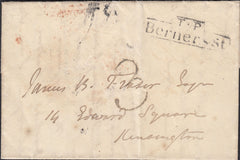 T.P
Berners St
James B. Fraser Esqr
3
14 Edward Square
Kensington